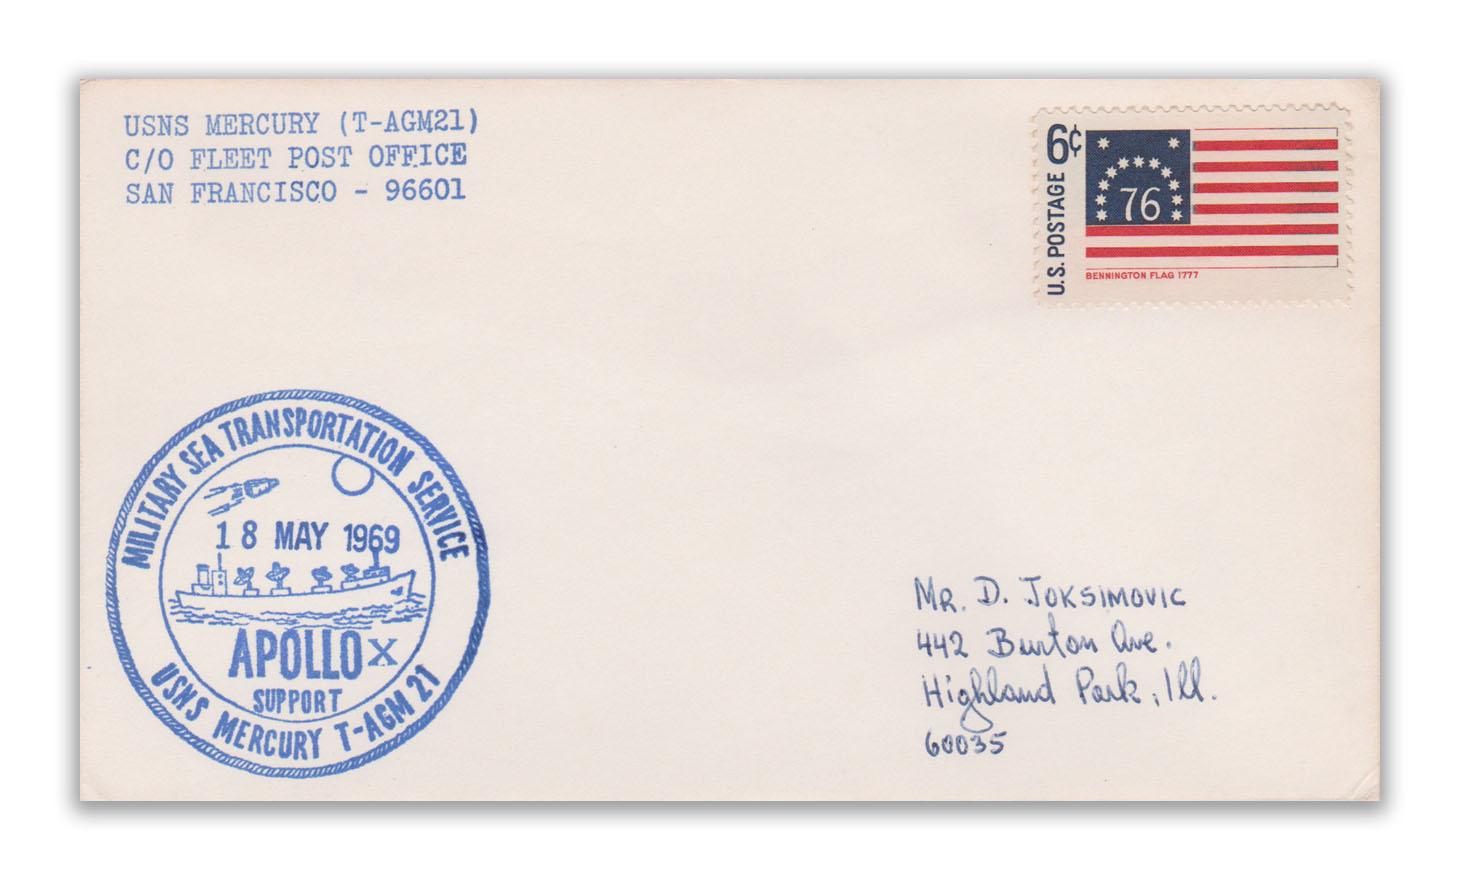 USNS MERCURY (T-AGM21)
C/O FLEET POST OFFICE
SAN FRANCISCO - 96601
6¢
U.S. POSTAGE
76
BENNINGTON FLAG 1777
MILITARY SEA TRANSPORTATION SERVICE
18 MAY 1969
APOLLO X
SUPPORT
USNS MERCURY T-AGM 21
MR. D. JOKSIMOVIC
442 Burton Ave.
Highland Park, Ill.
60035